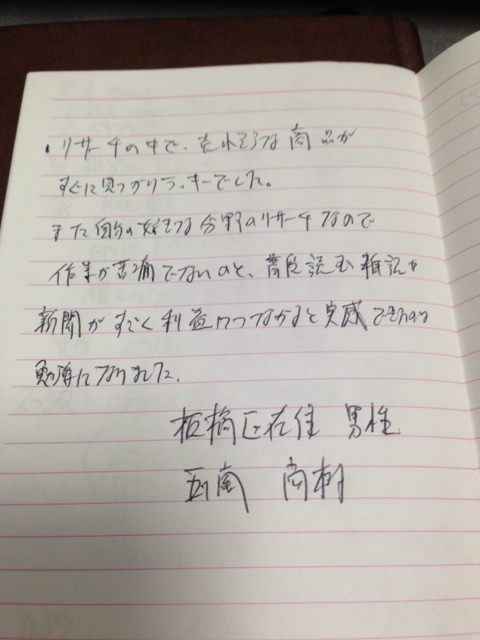 ・リサーチの中で、売れそうな商品が
すぐに見つかりラッキーでした。
また自分の好きな分野のリサーチなので
作業が苦痛でないのと、普段読む雑誌や
新聞がすごく利益につながると実感できたのは
勉強になりました。
板橋区在住 男性